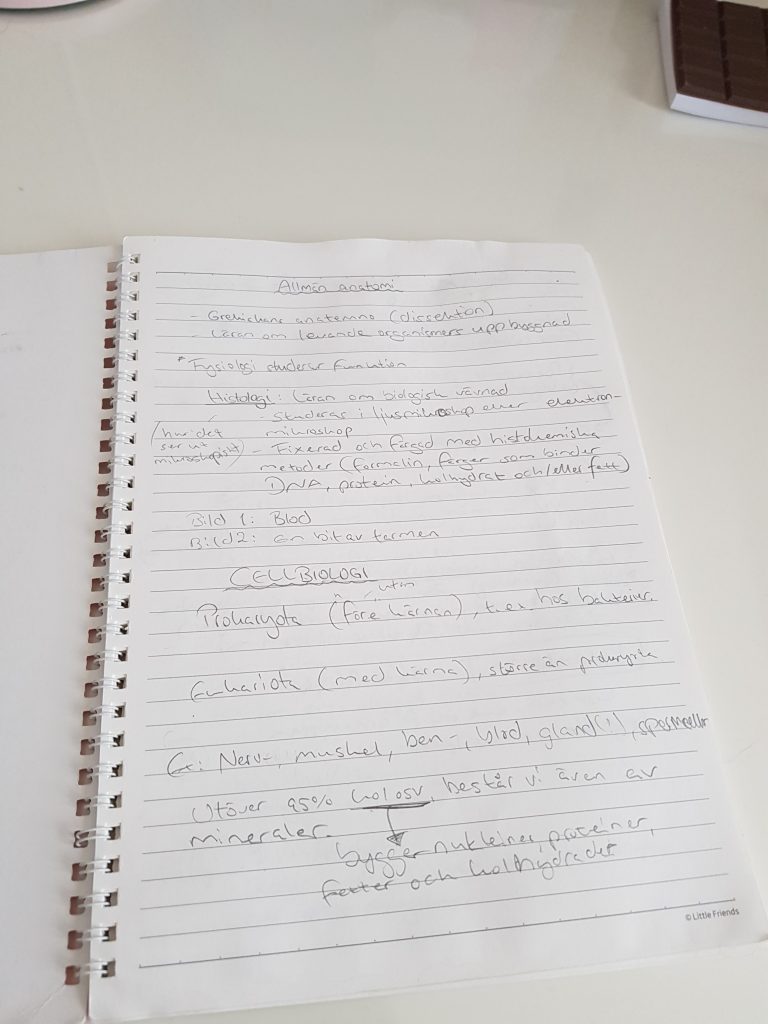 Allmän anatomi
- Grekiskans anatemno (dissektion)
- Läran om levande organismers uppbyggnad
* Fysiologi studerar funktion
Histologi: Läran om biologisk vävnad
- Studeras i ljusmikroskop eller elektron-
mikroskop
(hur det
ser ut
mikroskopiskt)
- Fixerad och färgad med histokemiska
metoder (formalin, färger som binder
DNA, protein, kolhydrat och/eller fett)
Bild 1: Blod
Bild 2: En bit av tarmen
CELLBIOLOGI
utan
Prokaryota (före kärnan), t.ex hos bakterier.
Eukariota (med kärna), större än prokaryota
Ex: Nerv-, muskel, ben-, blod, gland(!), spermceller
Utöver 95% kol osv, består vi även av
mineraler.
bygger nukleiner, proteiner,
fetter och kolhydrader
© Little Friends